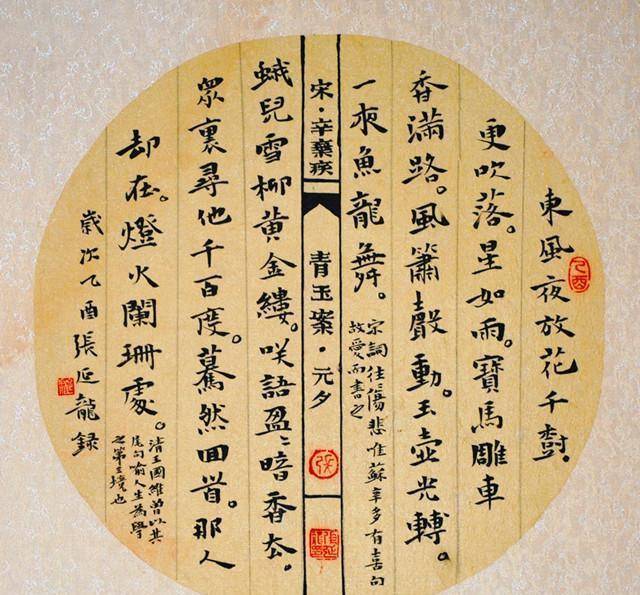 東風夜放花千樹。
更吹落。星如雨。寶馬雕車
香滿路。風簫聲動。玉壺光轉。
一夜魚龍舞。
宋詞往〻傷悲唯蘇辛多有喜句
故愛而書之
宋·辛棄疾
青玉案·元夕
蛾兒雪柳黃金縷。咲語盈〻暗香去。
眾裏尋他千百度。驀然囬首。那人
却在。燈火闌珊處。
清王國維曾以其
尾句喻人生為學
之第三境也
歲次乙酉張延龍錄
乙酉